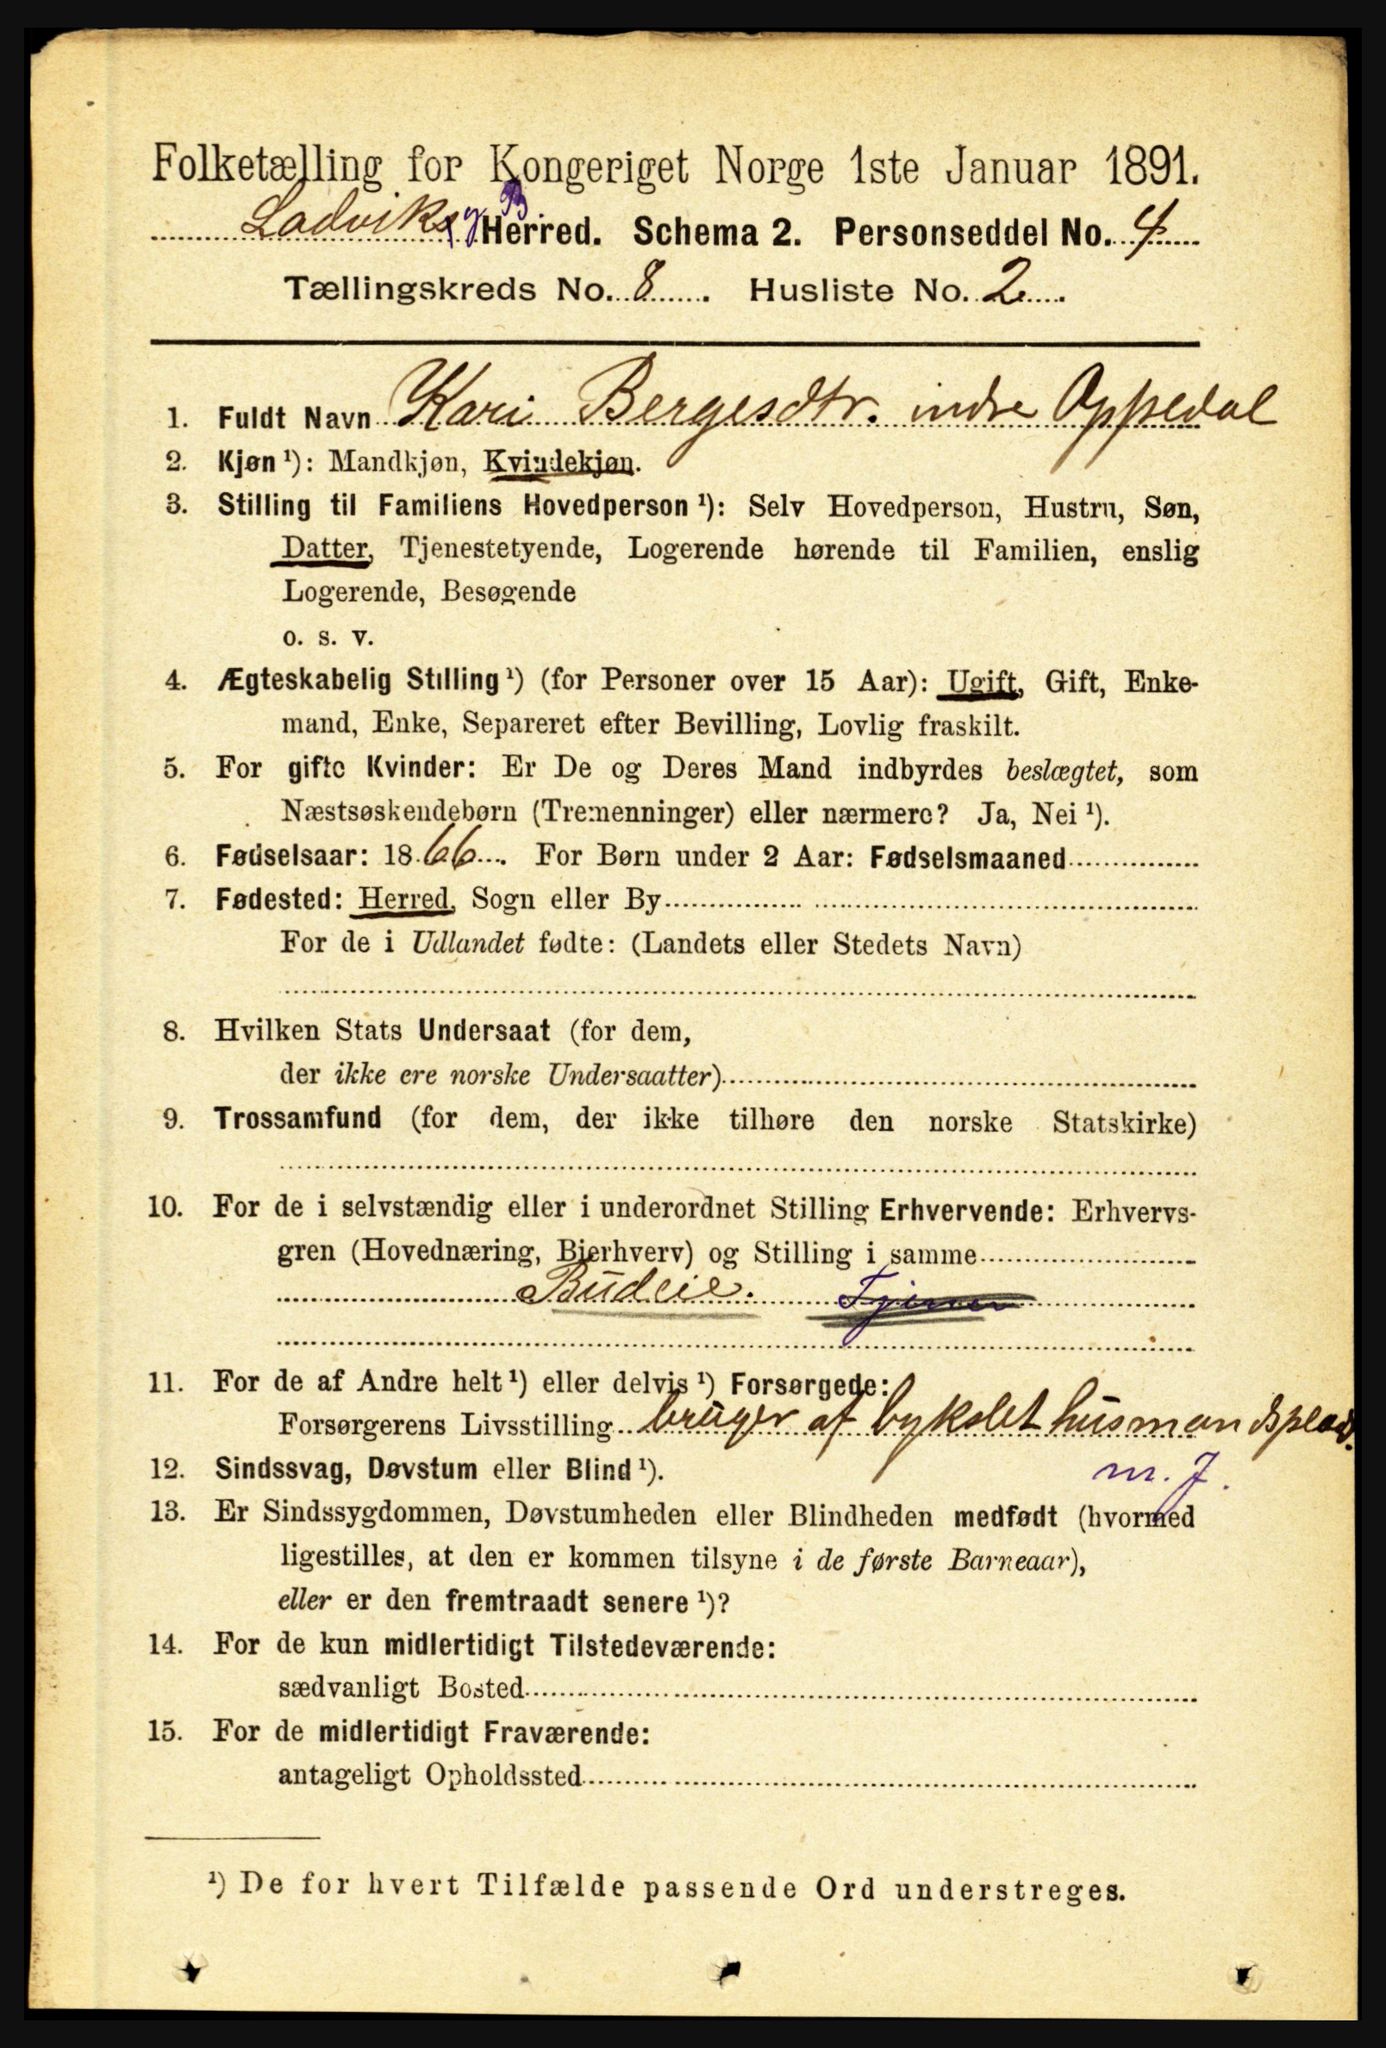 Folketælling for Kongeriget Norge 1ste Januar 1891.
Ladviks g B. Herred. Schema 2. Personseddel No. 4
Tællingskreds No. 8. Husliste No. 2.
1. Fuldt Navn Kari Bergesdtr. indre Oppedal
2. Kjøn ¹): Mandkjøn, Kvindekjøn.
3. Stilling til Familiens Hovedperson ¹): Selv Hovedperson, Hustru, Søn,
Datter, Tjenestetyende, Logerende hørende til Familien, enslig
Logerende, Besøgende
o. s. v.
4. Ægteskabelig Stilling ¹) (for Personer over 15 Aar): Ugift, Gift, Enke-
mand, Enke, Separeret efter Bevilling, Lovlig fraskilt.
5. For gifte Kvinder: Er De og Deres Mand indbyrdes beslægtet, som
Næstsøskendebørn (Tremenninger) eller nærmere? Ja, Nei ¹).
6. Fødselsaar: 1866. For Børn under 2 Aar: Fødselsmaaned
7. Fødested: Herred, Sogn eller By
For de i Udlandet fødte: (Landets eller Stedets Navn)
8. Hvilken Stats Undersaat (for dem,
der ikke ere norske Undersaatter)
9. Trossamfund (for dem, der ikke tilhøre den norske Statskirke)
10. For de i selvstændig eller i underordnet Stilling Erhvervende: Erhvervs-
gren (Hovednæring, Bierhverv) og Stilling i samme
Budeie.
11. For de af Andre helt ¹) eller delvis ¹) Forsørgede:
Forsørgerens Livsstilling bruger af bykslet husmandsplads.
12. Sindssvag, Døvstum eller Blind ¹). m. J.
13. Er Sindssygdommen, Døvstumheden eller Blindheden medfødt (hvormed
ligestilles, at den er kommen tilsyne i de første Barneaar),
eller er den fremtraadt senere ¹)?
14. For de kun midlertidigt Tilstedeværende:
sædvanligt Bosted
15. For de midlertidigt Fraværende:
antageligt Opholdssted
¹) De for hvert Tilfælde passende Ord understreges.